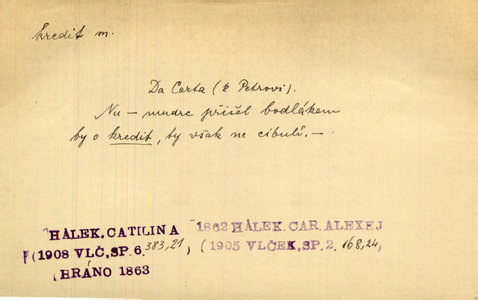 kredit m.
Da Carta (k Petrovi).
Nu – mudrc přišel bodlákem
by o kredit, ty však ne cibulí. –
HÁLEK, CATILINA
(1908 VLČ, SP. 6. 383,21,
HRÁNO 1863
1862 HÁLEK, CAR. ALEXEJ
(1905 VLČEK, SP. 2. 168,24,